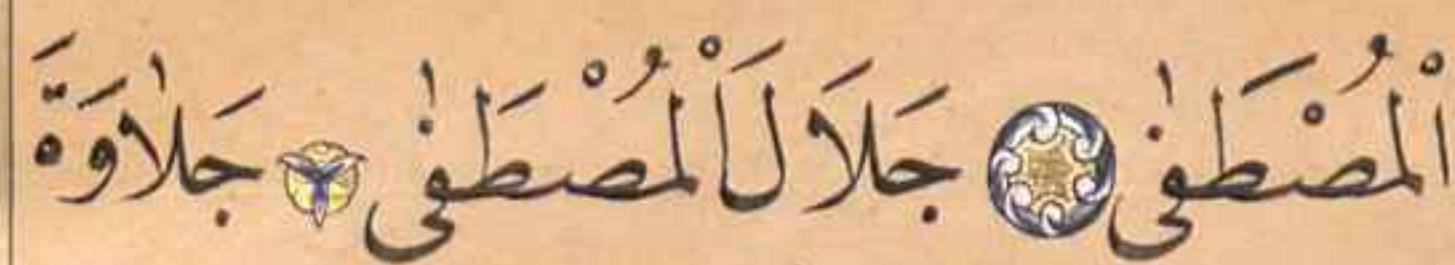 اْلمُصْطَفٰى جَلَالَ اْلمُصْطَفٰى جَلَاوَةَ